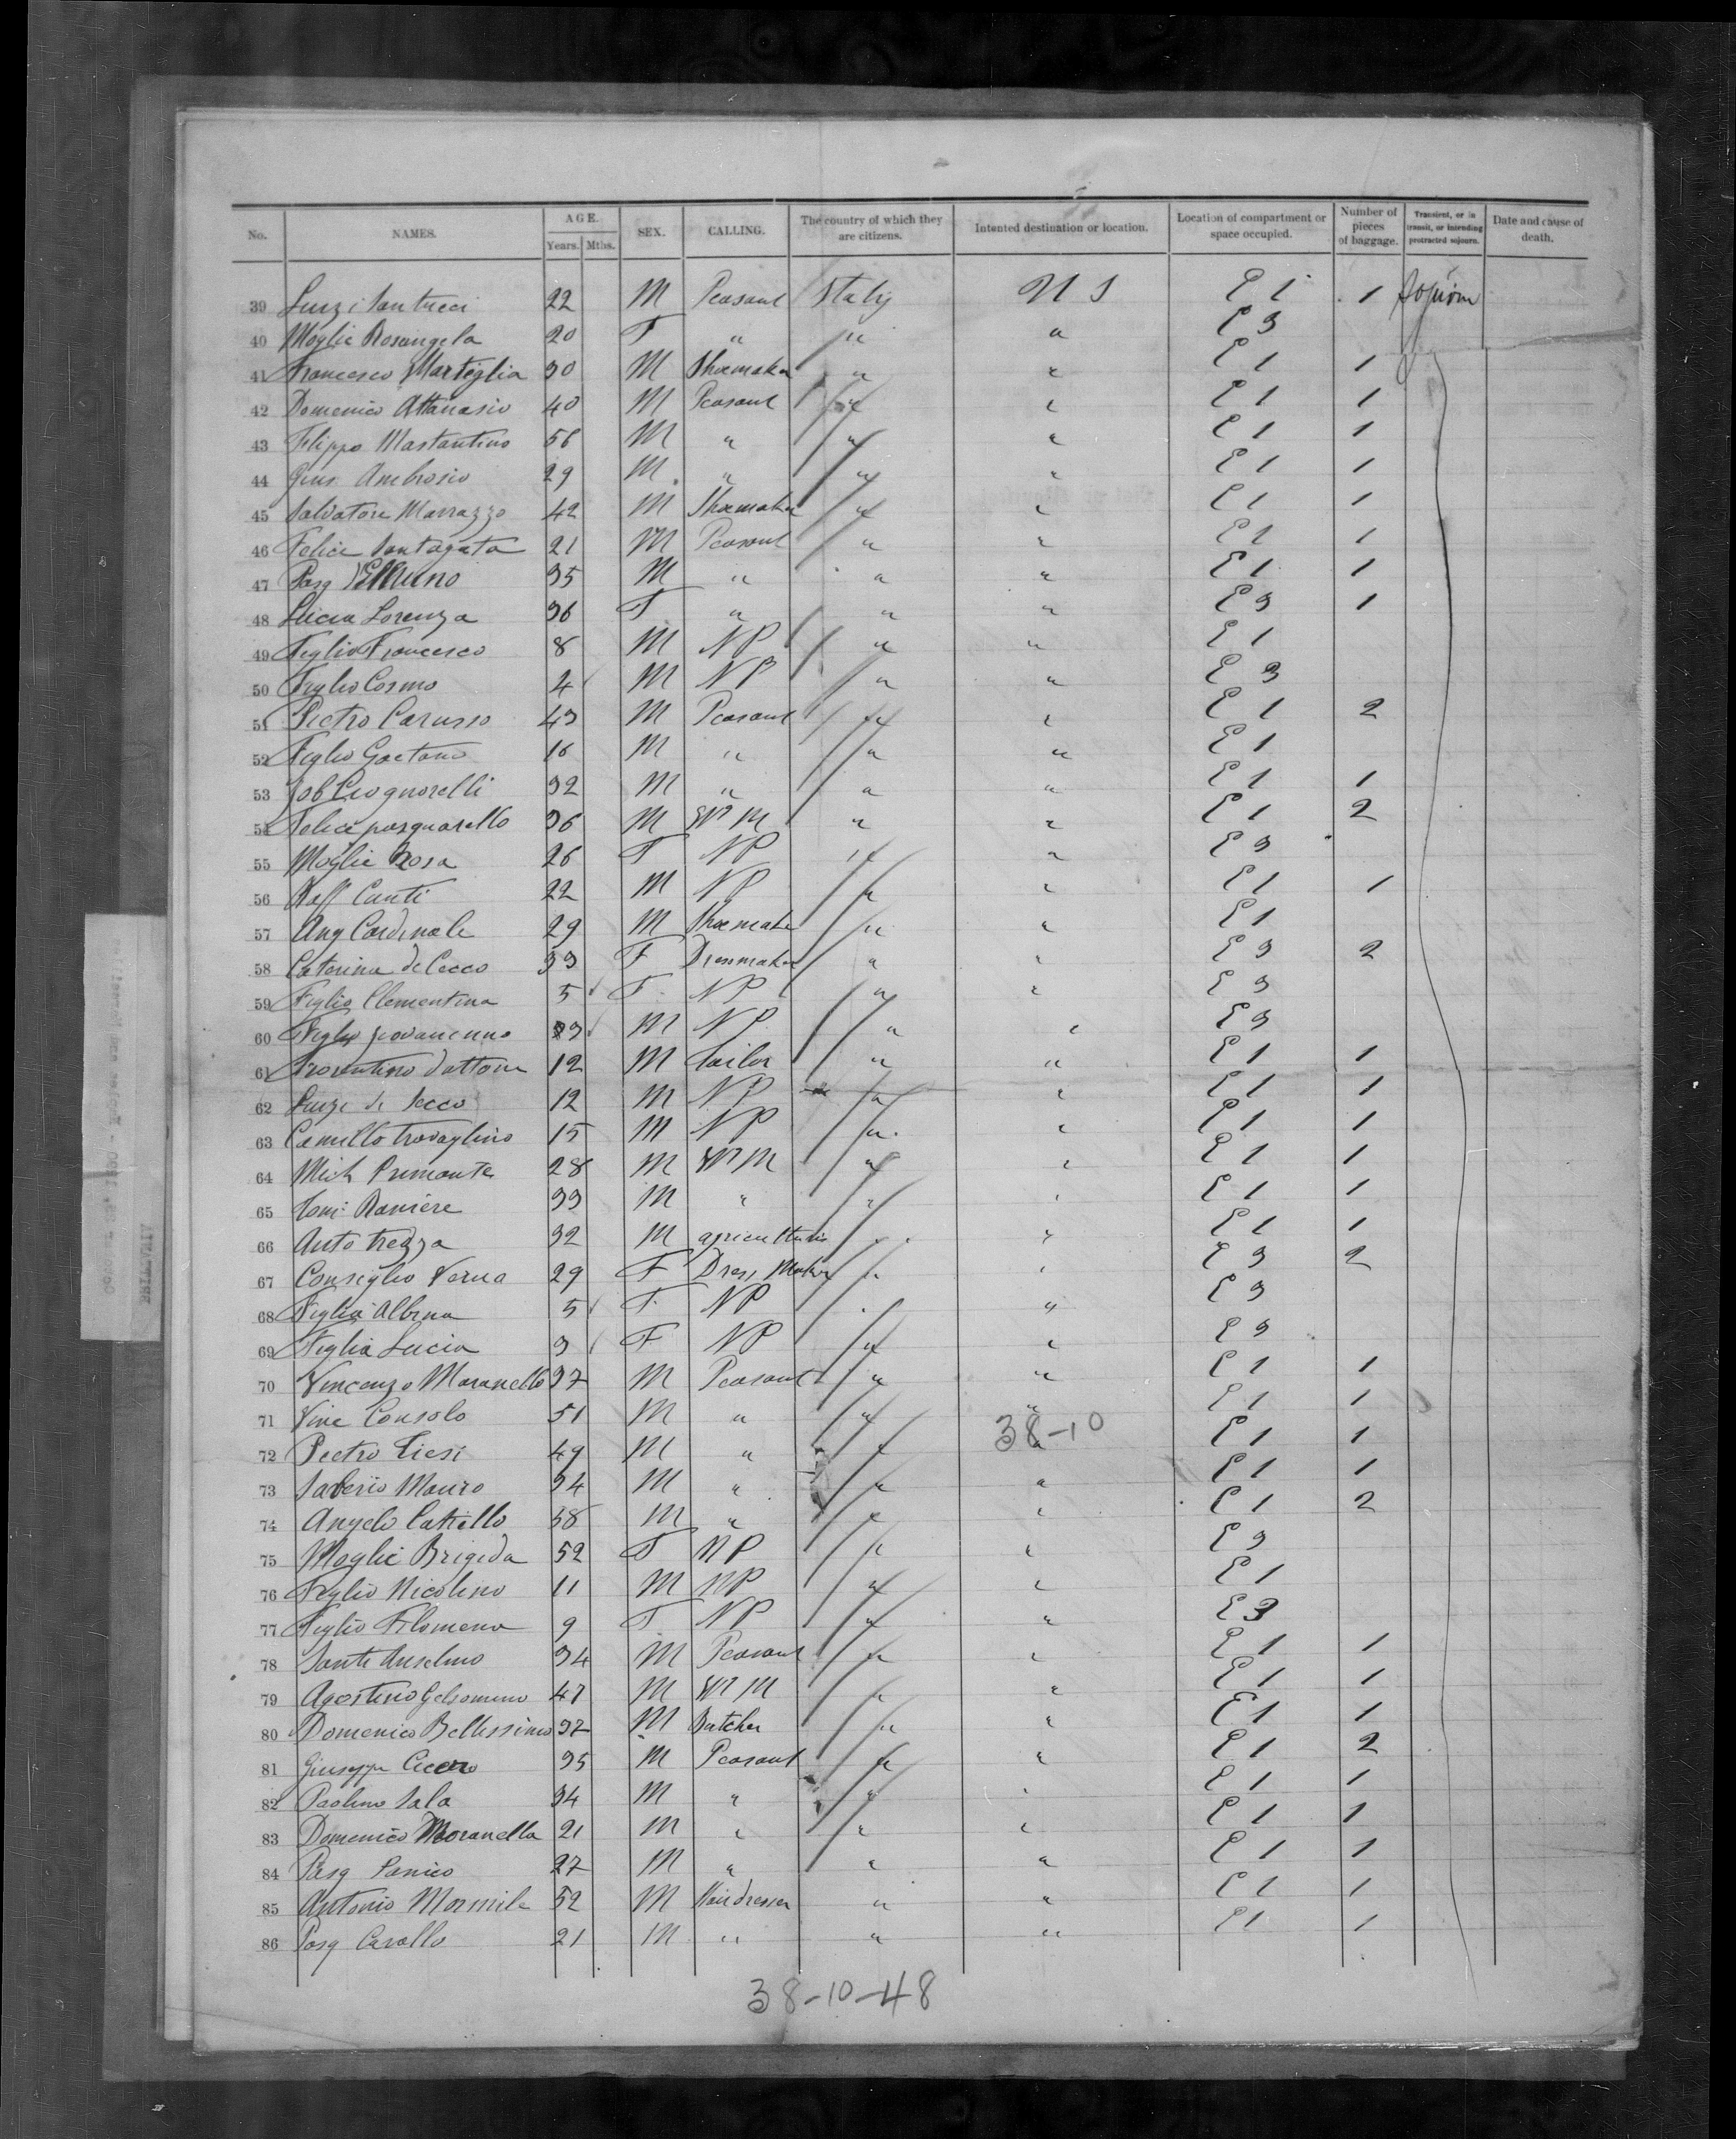 No. NAMES. AGE. Years. Mths. SEX. CALLING. The country of which they are citizens. Intented destination or location. Location of compartment or space occupied. Number of pieces of baggage. Transient, or in transit, or intending protracted sojourn. Date and cause of death.
39 Luigi Santucci 22 M Peasant Italy U S E 1 1 Sojourn
40 Moglie Rosangela 20 F " " " E 3
41 Francesco Martiglia 30 M Shoemaker " " E 1 1
42 Domenico Attanasio 40 M Peasant " " E 1 1
43 Filippo Mastantino 56 M " " " E 1 1
44 Gius. Ambrosio 29 M " " " E 1 1
45 Salvatore Marrazzo 42 M Shoemaker " " E 1 1
46 Felice Santagata 21 M Peasant " " E 1 1
47 Pasq 35 M " " " E 1 1
48 Lucia Lorenza 36 F " " " E 3 1
49 Figlio Francesco 8 M NP " " E 1
50 Figlio Cosmo 4 M NP " " E 3
51 Pietro Carusso 43 M Peasant " " E 1 2
52 Figlio Gaetano 16 M " " " E 1
53 32 M " " " E 1 1
54 Felice pasquarello 36 M W M " " E 1 2
55 Moglie Rosa 26 F NP " " E 3
56 Raff Canti 22 M NP " " E 1 1
57 Ang Cardinale 29 M Shoemaker " " E 1
58 Caterina de Cecco 33 F Dressmaker " " E 3 2
59 Figlia Clementina 5 F NP " " E 3
60 Figlio 3 M NP " " E 3
61 12 M Tailor " " E 1 1
62 Luigi di 12 M NP " " E 1 1
63 Camillo Travaglino 15 M NP " " E 1 1
64 Mich Primonte 28 M W M " " E 1 1
65 Tom: Raniere 33 M " " " E 1 1
66 Anto trezza 32 M " " E 1 1
67 Consiglio Verna 29 F Dress Maker " " E 3 2
68 Figlia Albina 5 F NP " " E 3
69 Figlia Lucia 3 F NP " " E 3
70 Vincenzo Moranello 37 M Peasant " " E 1 1
71 Vinc Consolo 51 M " " " E 1 1
38-10
72 Pietro Liesi 49 M " " " E 1 1
73 Saverio Mauro 34 M " " " E 1 1
74 Angelo Catiello 58 M " " " E 1 2
75 Moglie Brigida 52 F NP " " E 3
76 Figlio Nicolino 11 M NP " " E 1
77 Figlio Filomena 9 F NP " " E 3
78 Sante Anselmo 34 M Peasant " " E 1 1
79 Agostino Gelsomino 47 M W M " " E 1 1
80 Domenico Bellissimo 37 M Butcher " " E 1 1
81 Giuseppe Cicero 35 M Peasant " " E 1 2
82 Paolino Sala 34 M " " " E 1 1
83 Domenico Moranella 21 M " " " E 1 1
84 Pasq Panico 27 M " " " E 1 1
85 Antonio Mormile 52 M Hairdresser " " E 1 1
86 Pasq Cavallo 21 M " " " E 1 1
38-10-48